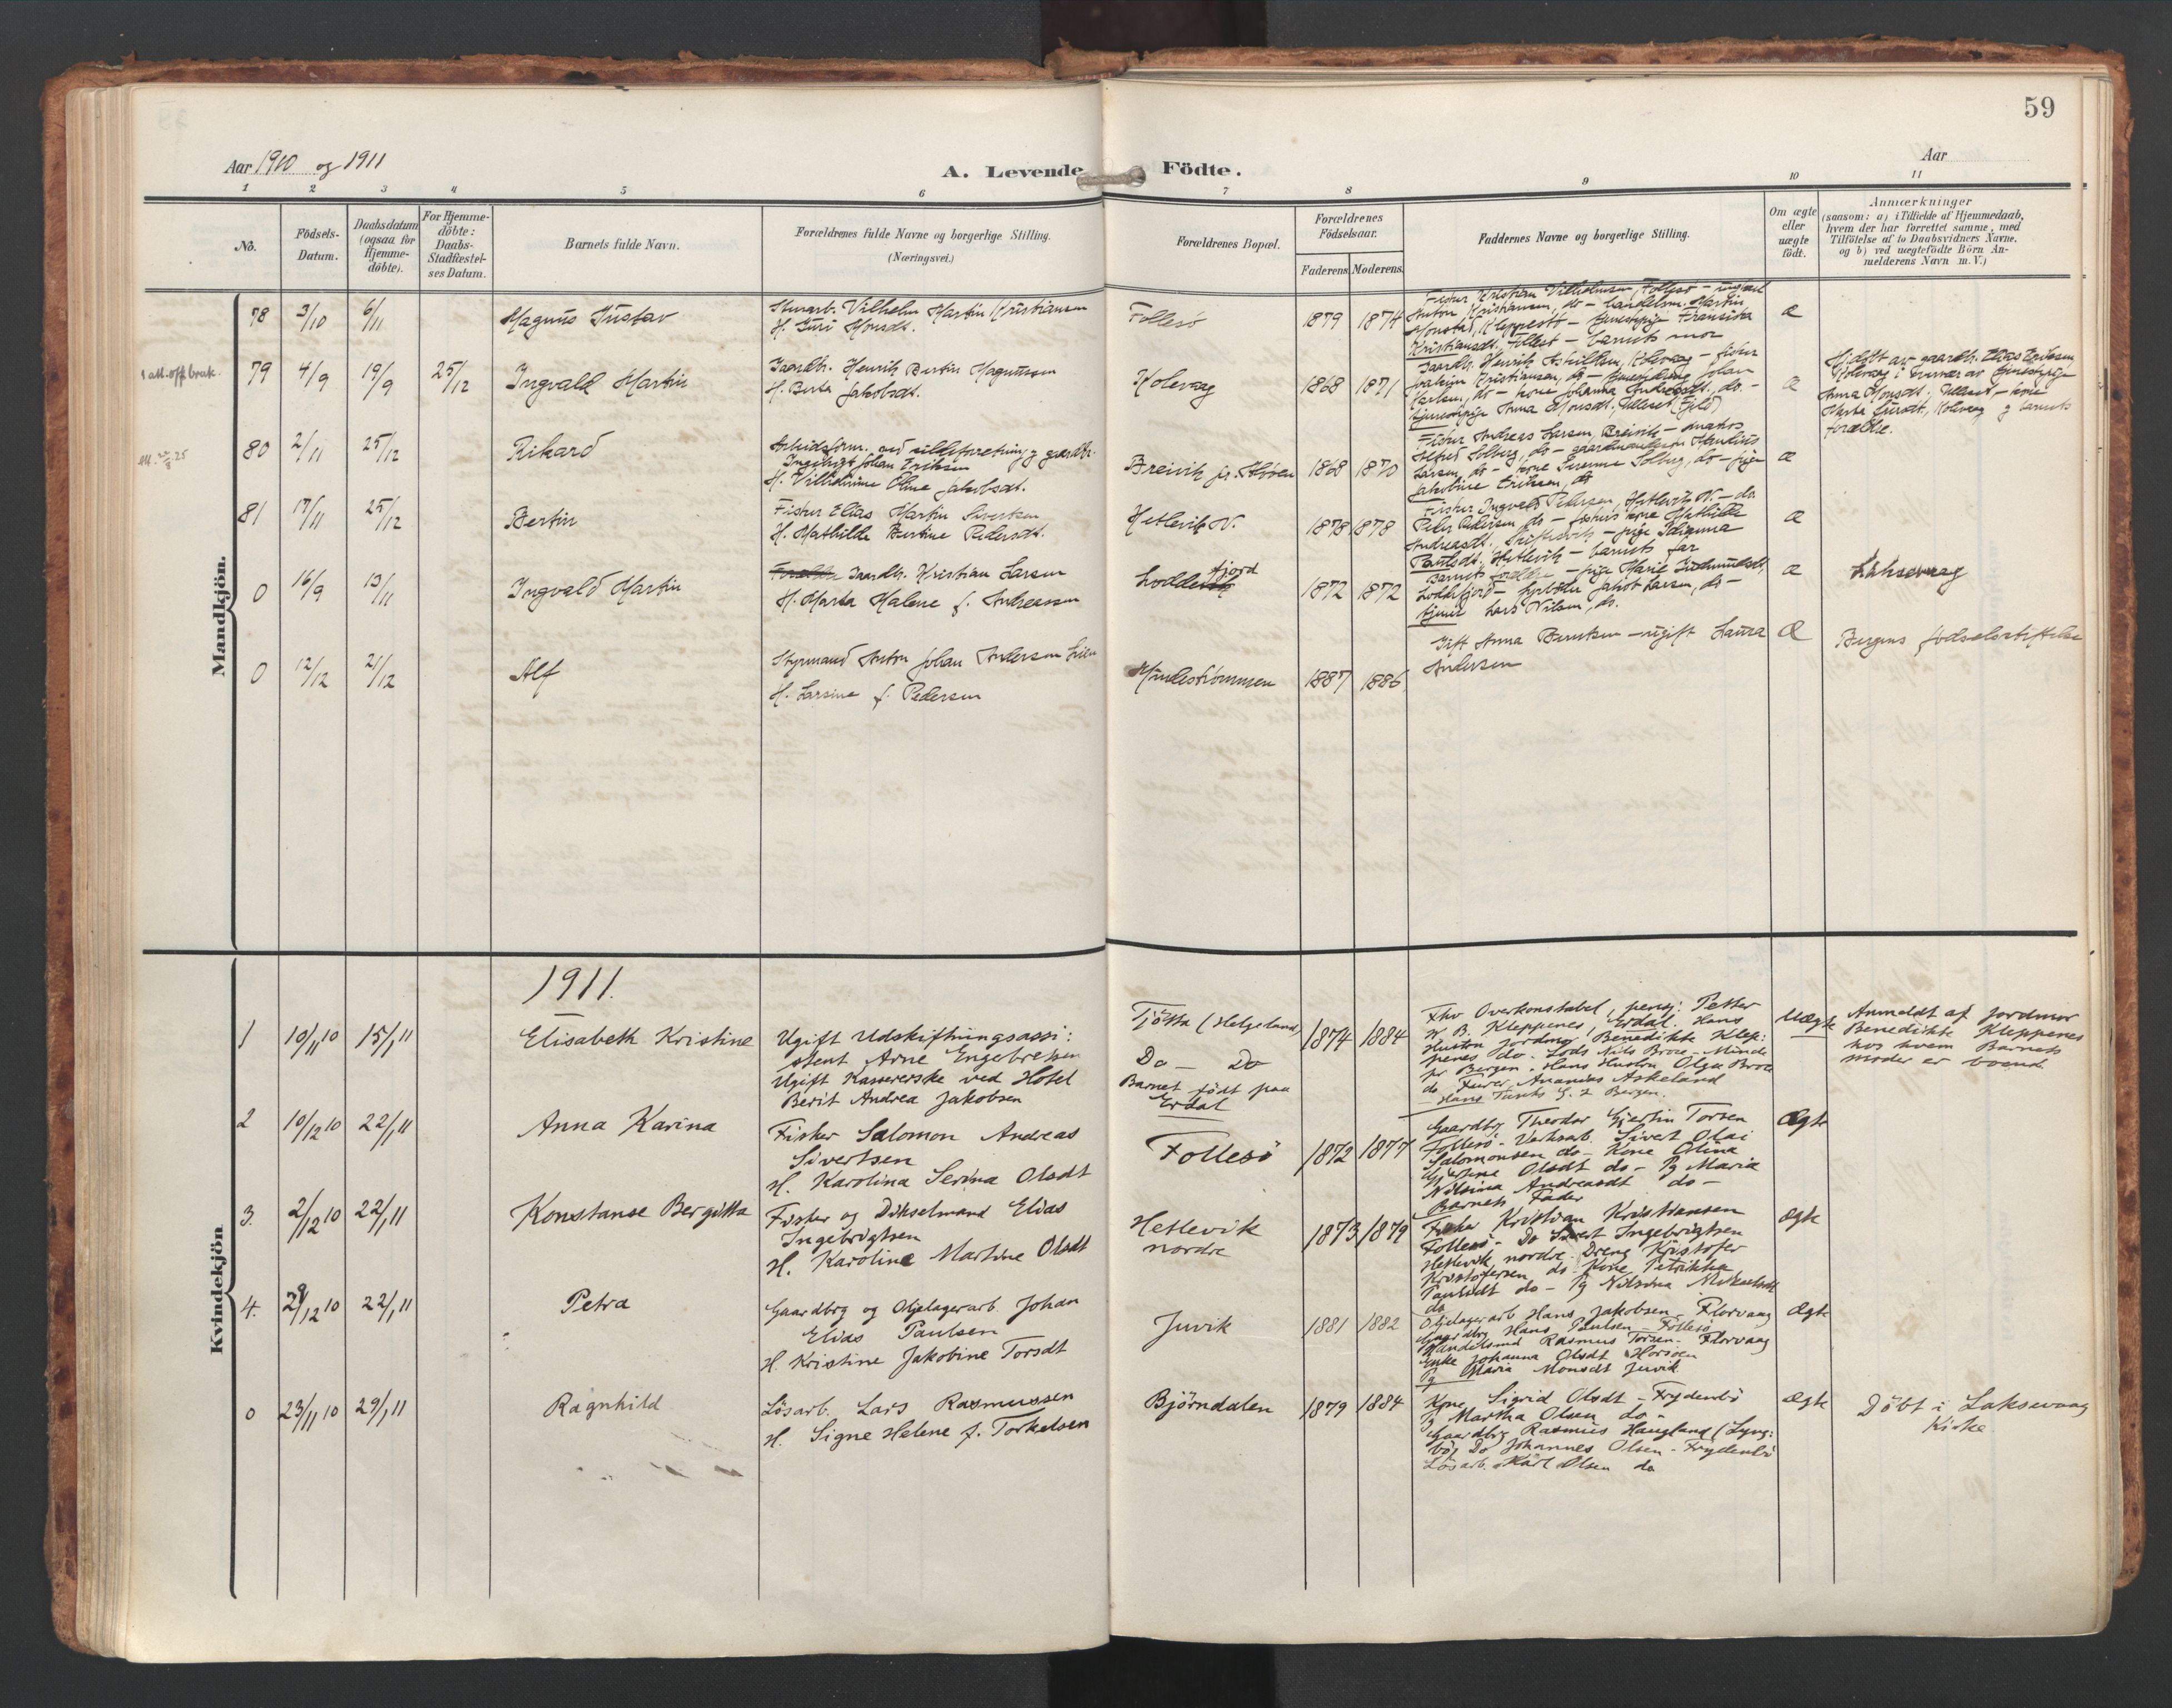 59
Aar 1910 og 1911
A. Levende Födte.
Aar
1 2 3 4 5 6 7 8 9 10 11
No.
Födsels-Datum.
Daabsdatum (ogsaa for Hjemme-döbte).
For Hjemme-döbte: Daabs-Stadfæstel-ses Datum.
Barnets fulde Navn.
Forældrenes fulde Navne og borgerlige Stilling.
(Næringsvei.)
Forældrenes Bopæl.
Forældrenes Födselsaar.
Faderens. Moderens.
Faddernes Navne og borgerlige Stilling.
Om ægte eller uægte födt.
Anmærkninger
(saasom: a) i Tilfælde af Hjemmedaab,
hvem der har forrettet samme, med
Tilföielse af to Daabsvidners Navne,
og b) ved uægtefödte Börn An-
melderens Navn m. V.)
Mandkjön.
78 3/10 6/11 Magnus Gustav
Vilhelm Martin Kristiansen
H. Guri Monsdt.
Follesö 1879 1874
Fisker Kristian Vilhelmsen, Follesö - ungkarl
Anton Kristiansen, do - handelsm. Martin
Monstad, Kleppestö - tjenestepige Fransiska
Kristiansdt., Follesö - barnets mor
æ
1 att. off. bruk.
79 4/9 19/9 25/12 Ingvald Martin
Gaardbr. Henrik Bertin Magnussen
H. Berta Jakobsdt.
Kolevaag 1868 1871
Gaardbr. Henrik Askildsen, Kolevaag - fisker
Joakim Kristiansen, do - Johan
Karlsen, do - kone Johanna Andreasdt., do -
tjenestepige Anna Monsdt.
æ
Hj. döpt av gaardbr. Elias Eriksen,
Kolevaag i nærvær av tjenestepige
Anna Monsdt. - kone
Marta Guridt., Kolevaag og barnets
forældre.
80 2/11 25/12 Rikard
Arbeidsform. ved sildeforretning og gaardbr.
Ingebrigt Johan Eriksen
H. Vilhelmine Oline Jakobsdt.
Breivik 1868 1870
Fisker Andreas Larsen, Breivik - matros
Alfred Solberg, do -
Larsen, do - kone Severine Solberg, do - pige
Jakobine Eriksen, do
æ
81 17/11 25/12 Bertin
Fisker Elias Martin Sivertsen
H. Mathilde Bertine Pedersdt.
Hetlevik N. 1878 1878
Fisker Ingvald Pedersen, Hetlevik N. - do.
Peder Pedersen do - fiskers kone Mathilde
Andreasdt. - pige
Paulsdt., Hetlevik - barnets far
æ
0 16/9 13/11 Ingvald Martin
Gaardbr. Kristian Larsen
H. Marta Malene f. Andreassen
Loddefjord 1872 1872
Barnets - pige Marie Gudmundsdt,
Loddefjord - fyrböder Jakob Larsen, do -
Lars Nilsen, do.
æ
Laksevaag
0 12/12 21/12 Alf
Styrmand Anton Johan Andersen
H. Larsine f. Pedersen
1887 1886
Gift Anna Berntsen - ugift Laura
Andersen
Æ
Bergens fødselsstiftelse
Kvindekjön
1911.
1 10/11 10 15/1 11 Elisabeth Kristine
Ugift Udskiftningsassi:
stent Arne Engebretsen
Ugift Kassererske ved Hotel
Berit Andrea Jakobsen
Tjötta (Helgeland)
Do - Do
Barnet födt paa
Erdal
1874 1884
Fhv Overkonstabel, pensj: Petter
W. B. Kleppenes, Erdal. Hans
Hustru Jordmor Benedikte Klep:
penes do. Lods Nils Broe - Minde
pr Bergen. Hans Hustru Olga Broe
do Furer Ananias Askeland
Hans Tanks G. 2 Bergen.
Uægte
Anmeldt af Jordmor
Benedikte Kleppenes
hos hvem Barnets
moder er boende.
2 10/12 10 22/1 11 Anna Karina
Fisker Salomon Andreas
Sivertsen
H. Karolina Serina Olsdt
Follesö 1872 1877
Gaardbrg Theodor Gjertin Torsen
Follesö - Verksarb. Sivert Olai
Salomonsen do - Kone Olina
Gjertine Olsdt do - Pg Maria
Nilsina Andreasdt do -
Barnets Fader
Ægte
3. 2/12 10 22/1 11 Konstanse Bergitta
Fisker og Dikselmand Elias
Ingebrigtsen
H. Karoline Martine Olsdt
Hetlevik
nordre
1873 1879
Fisker Kristian Kristiansen
Follesö - Do Sivert Ingebrigtsen
Hetlevik nordre. Dreng Kristofer
Kristofersen do Kone Petrikka
Paulsdt do - Pg Nilsina Mikkelsdt
do
ægte
4. 29/12 10 22/1 11 Petra
Gaardbrg og Oljelagerarb. Johan
Elias Paulsen
H. Kristine Jakobine Torsdt
Juvik 1881 1882
Oljelagerarb Hans Jakobsen - Florvaag
Gaardbrg Hans Paulsen - Follesö
Handelsmd Rasmus Torsen - Florvaag
Enke Johanna Olsdt Horsöen
Pg Maria Monsdt Juvik
Ægte
0 23/11 10 29/1 11 Ragnhild
Lösarb. Lars Rasmussen
H. Signe Helene f. Torkelsen
Björndalen 1879 1884
Kone Sigrid Olsdt - Frydenbö
Pg Martha Olsen do -
Gaardbrg Rasmus Haugland (Lyng:
bö) Do Johannes Olsen - Frydenbö
Lösarb. Karl Olsen do
ægte
Döbt i Laksevaag
Kirke